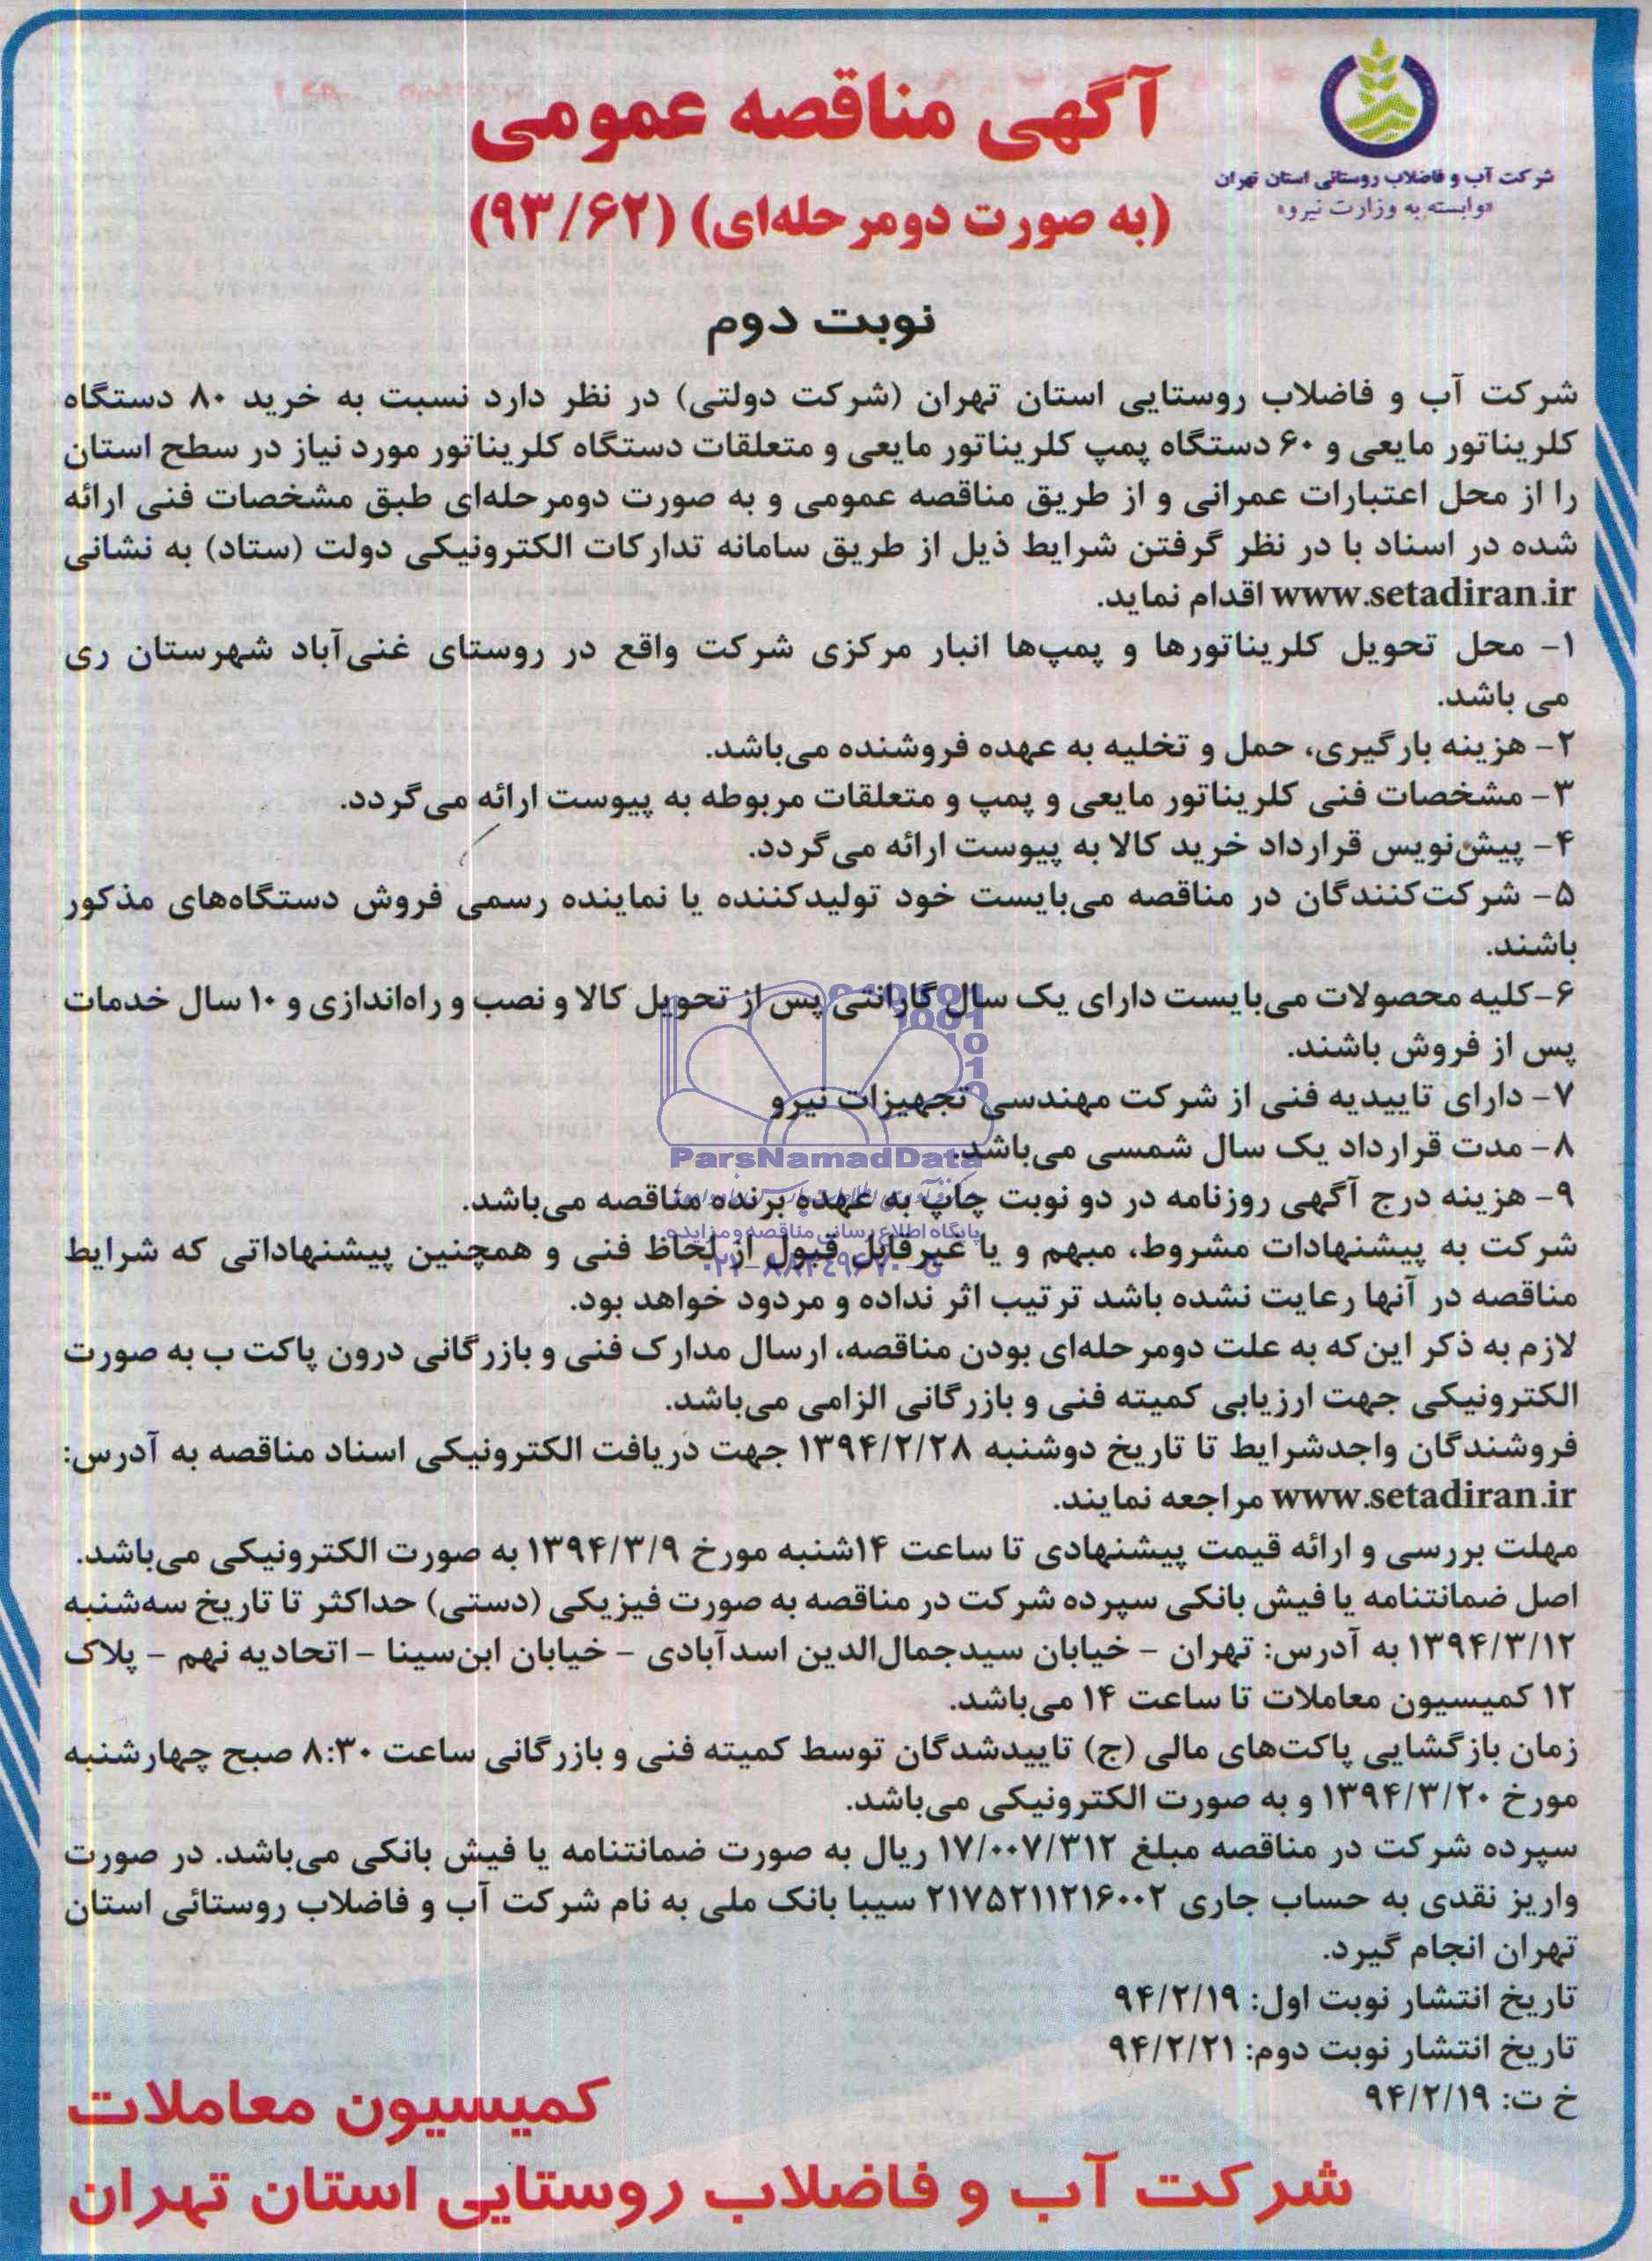 شرکت آب و فاضلاب روستائی استان تهران
«وابسته به وزارت نیرو»
آگهی مناقصه عمومی
(به صورت دومرحله‌ای) (۹۳/۶۲)
نوبت دوم
شرکت آب و فاضلاب روستایی استان تهران (شرکت دولتی) در نظر دارد نسبت به خرید ۸۰ دستگاه
کلریناتور مایعی و ۶۰ دستگاه پمپ کلریناتور مایعی و متعلقات دستگاه کلریناتور مورد نیاز در سطح استان
را از محل اعتبارات عمرانی و از طریق مناقصه عمومی و به صورت دومرحله‌ای طبق مشخصات فنی ارائه
شده در اسناد با در نظر گرفتن شرایط ذیل از طریق سامانه تدارکات الکترونیکی دولت (ستاد) به نشانی
www.setadiran.ir اقدام نماید.
۱- محل تحویل کلریناتورها و پمپ‌ها انبار مرکزی شرکت واقع در روستای غنی‌آباد شهرستان ری
می باشد.
۲- هزینه بارگیری، حمل و تخلیه به عهده فروشنده می‌باشد.
۳- مشخصات فنی کلریناتور مایعی و پمپ و متعلقات مربوطه به پیوست ارائه می‌گردد.
۴- پیش‌نویس قرارداد خرید کالا به پیوست ارائه می‌گردد.
۵- شرکت‌کنندگان در مناقصه می‌بایست خود تولیدکننده یا نماینده رسمی فروش دستگاه‌های مذکور
باشند.
۶-کلیه محصولات می‌بایست دارای یک سال گارانتی پس از تحویل کالا و نصب و راه‌اندازی و ۱۰ سال خدمات
پس از فروش باشند.
۷- دارای تاییدیه فنی از شرکت مهندسی تجهیزات نیرو
۸- مدت قرارداد یک سال شمسی می‌باشد.
ParsNamadData
۹- هزینه درج آگهی روزنامه در دو نوبت چاپ به عهده برنده مناقصه می‌باشد.
پایگاه اطلاع رسانی مناقصه و مزایده
شرکت به پیشنهادات مشروط، مبهم و یا غیرقابل قبول از لحاظ فنی و همچنین پیشنهاداتی که شرایط
مناقصه در آنها رعایت نشده باشد ترتیب اثر نداده و مردود خواهد بود.
لازم به ذکر این‌که به علت دومرحله‌ای بودن مناقصه، ارسال مدارک فنی و بازرگانی درون پاکت ب به صورت
الکترونیکی جهت ارزیابی کمیته فنی و بازرگانی الزامی می‌باشد.
فروشندگان واجدشرایط تا تاریخ دوشنبه ۱۳۹۴/۲/۲۸ جهت دریافت الکترونیکی اسناد مناقصه به آدرس:
www.setadiran.ir مراجعه نمایند.
مهلت بررسی و ارائه قیمت پیشنهادی تا ساعت ۱۴شنبه مورخ ۱۳۹۴/۳/۹ به صورت الکترونیکی می‌باشد.
اصل ضمانتنامه یا فیش بانکی سپرده شرکت در مناقصه به صورت فیزیکی (دستی) حداکثر تا تاریخ سه‌شنبه
۱۳۹۴/۳/۱۲ به آدرس: تهران - خیابان سیدجمال‌الدین اسدآبادی - خیابان ابن‌سینا - اتحادیه نهم - پلاک
۱۲ کمیسیون معاملات تا ساعت ۱۴ می‌باشد.
زمان بازگشایی پاکت‌های مالی (ج) تاییدشدگان توسط کمیته فنی و بازرگانی ساعت ۸:۳۰ صبح چهارشنبه
مورخ ۱۳۹۴/۳/۲۰ و به صورت الکترونیکی می‌باشد.
سپرده شرکت در مناقصه مبلغ ۱۷/۰۰۷/۳۱۲ ریال به صورت ضمانتنامه یا فیش بانکی می‌باشد. در صورت
واریز نقدی به حساب جاری ۲۱۷۵۲۱۱۲۱۶۰۰۲ سیبا بانک ملی به نام شرکت آب و فاضلاب روستائی استان
تهران انجام گیرد.
تاریخ انتشار نوبت اول: ۹۴/۲/۱۹
تاریخ انتشار نوبت دوم: ۹۴/۲/۲۱
خ ت: ۹۴/۲/۱۹
کمیسیون معاملات
شرکت آب و فاضلاب روستایی استان تهران